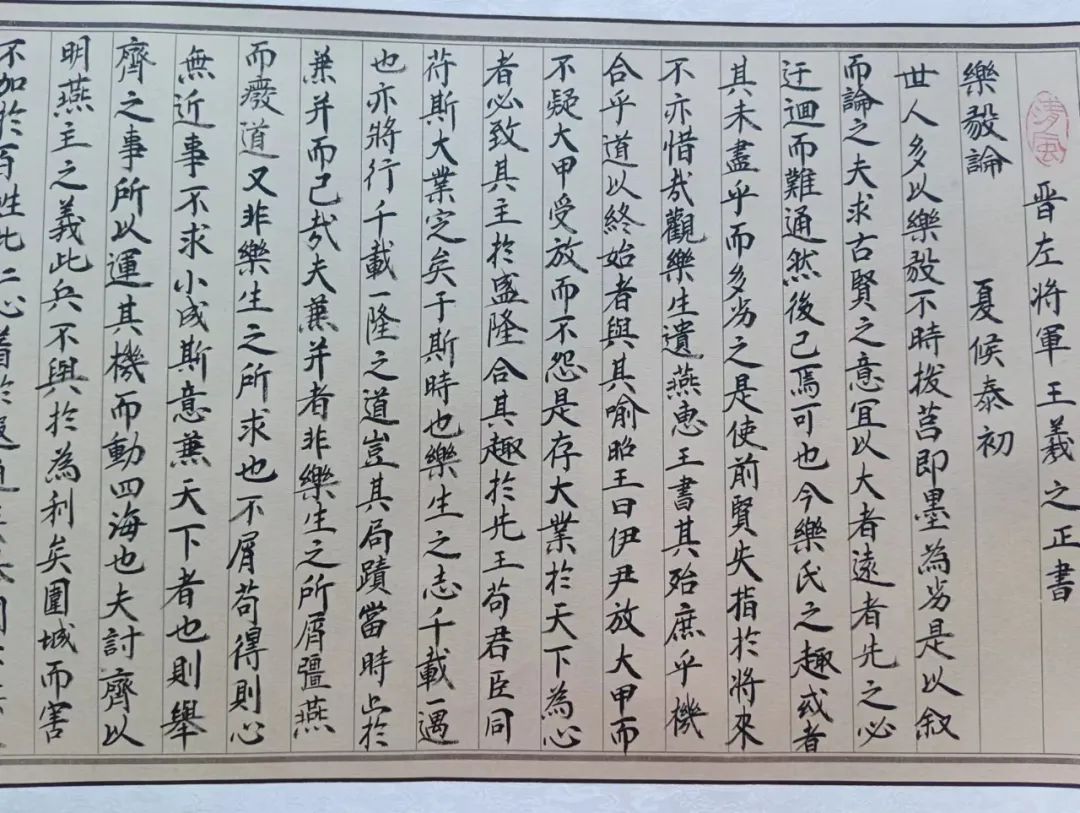 清风
晋左將軍王羲之正書
樂毅論 夏候泰初
世人多以樂毅不時拔莒即墨為劣是以叙
而論之夫求古賢之意宜以大者遠者先之必
迂迴而難通然後已焉可也今樂氏之趣或者
其未盡乎而多劣之是使前賢失指於將來
不亦惜哉觀樂生遺燕惠王書其殆庶乎機
合乎道以終始者與其喻昭王曰伊尹放大甲而
不疑大甲受放而不怨是存大業於天下為心
者必致其主於盛隆合其趣於先王苟君臣同
苻斯大業定矣于斯時也樂生之志千載一遇
也亦將行千載一隆之道豈其局蹟當時止於
兼并而已哉夫兼并者非樂生之所屑彊燕
而癈道又非樂生之所求也不屑苟得則心
無近事不求小成斯意兼天下者也則舉
齊之事所以運其機而動四海也夫討齊以
明燕主之義此兵不興於為利矣圍城而害
不加於百姓此仁心著於遐邇